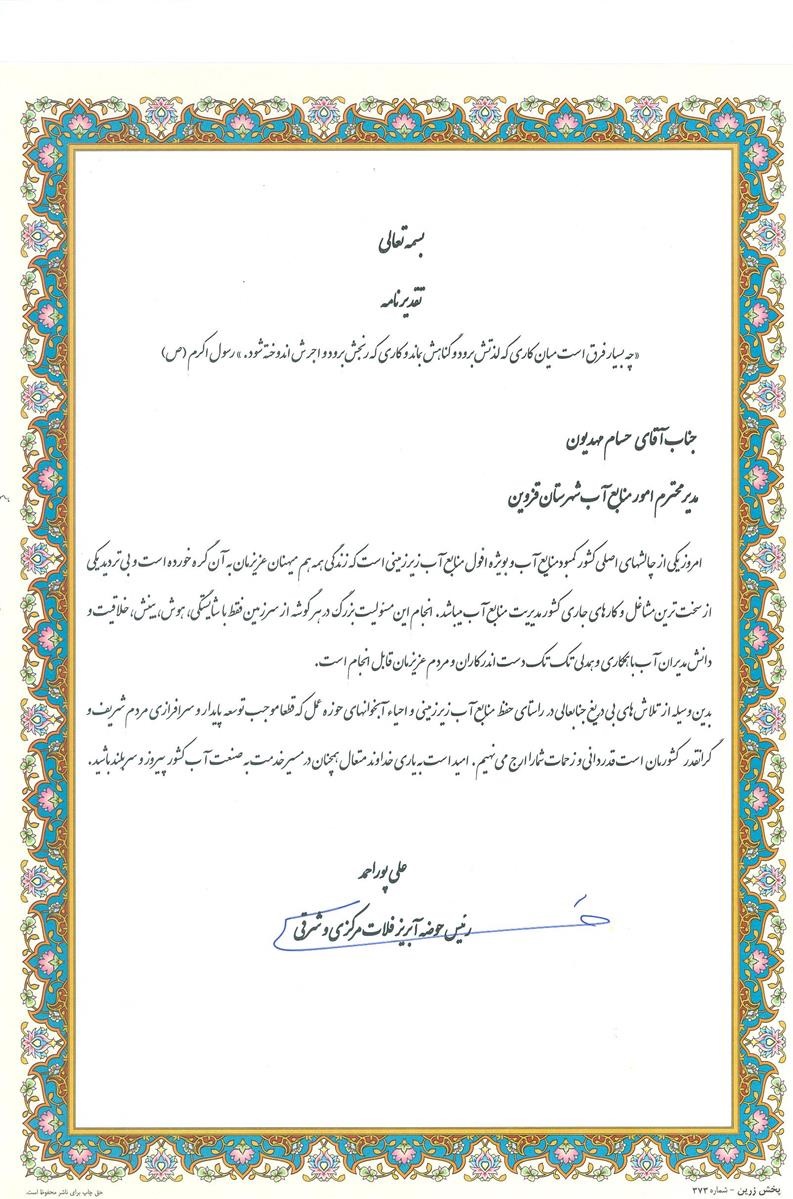 بسمه تعالی
تقدیرنامه
«چه بسیار فرق است میان کاری که لذتش برود و گناهش بماند و کاری که رنجش برود و اجرش اندوخته شود.» رسول اکرم (ص)
جناب آقای حسام مهدیون
مدیر محترم امور منابع آب شهرستان قزوین
امروز یکی از چالشهای اصلی کشور کمبود منابع آب و بویژه افول منابع آب زیرزمینی است که زندگی همه هم میهنان عزیزمان به آن گره خورده است و بی تردید یکی
از سخت ترین مشاغل و کارهای جاری کشور مدیریت منابع آب میباشد. انجام این مسئولیت بزرگ در هر گوشه از سرزمین فقط با شایستگی، هوش، بینش، خلاقیت و
دانش مدیران آب با همکاری و همدلی تک تک دست اندرکاران و مردم عزیزمان قابل انجام است.
بدین وسیله از تلاش های بی دریغ جنابعالی در راستای حفظ منابع آب زیرزمینی و احیاء آبخوانهای حوزه عمل که قطعا موجب توسعه پایدار و سرافرازی مردم شریف و
گرانقدر کشورمان است قدردانی و زحمات شما را ارج می نهیم. امید است به یاری خداوند متعال همچنان در مسیر خدمت به صنعت آب کشور پیروز و سربلند باشید.
علی پوراحمد
رئیس حوضه آبریز فلات مرکزی و شرقی
پخش زرین - شماره ۳۷۳
حق چاپ برای ناشر محفوظ است.